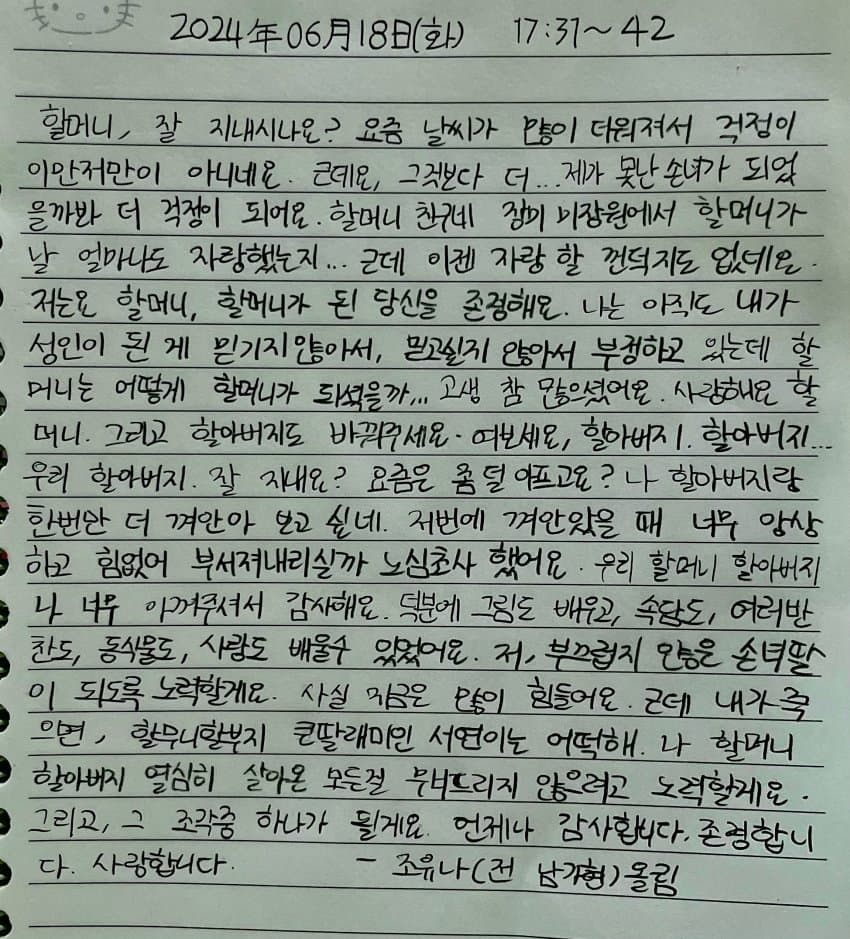 2024年 06月 18日(화) 17:37~42
할머니, 잘 지내시나요? 요즘 날씨가 많이 더워져서 걱정이
이만저만이 아니네요. 근데요, 그것보다 더... 제가 못난 손녀가 되었
을까봐 더 걱정이 되어요. 할머니 친구네 장미 미장원에서 할머니가
날 얼마나도 자랑했는지... 근데 이젠 자랑 할 껀덕지도 없데요.
저는요 할머니, 할머니가 된 당신을 존경해요. 나는 아직도 내가
성인이 된 게 믿기지 않아서, 믿고싶지 않아서 부정하고 있는데 할
머니는 어떻게 할머니가 되셨을까... 고생 참 많으셨어요. 사랑해요 할
머니. 그리고 할아버지도 바꿔주세요. 여보세요, 할아버지. 할아버지...
우리 할아버지. 잘 지내요? 요즘은 좀 덜 아프고요? 나 할아버지랑
한번만 더 껴안아 보고 싶네. 저번에 껴안았을 때 너무 앙상
하고 힘없어 부서져내리실까 노심초사 했어요. 우리 할머니 할아버지
나 너무 아껴주셔서 감사해요. 덕분에 그림도 배우고, 속담도, 여러반
찬도, 동식물도, 사랑도 배울수 있었어요. 저, 부끄럽지 않은 손녀딸
이 되도록 노력할게요. 사실 지금은 많이 힘들어요. 근데 내가 죽
으면, 할무니할부지 큰딸래미인 서연이는 어떡해. 나 할머니
할아버지 열심히 살아온 모든걸 무너뜨리지 않으려고 노력할게요.
그리고, 그 조각중 하나가 될게요. 언제나 감사합니다. 존경합니
다. 사랑합니다. - 조유나(전 남가형)올림